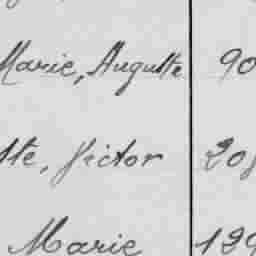 Marie, Auguste 90
tte, Victor 208
Marie 129